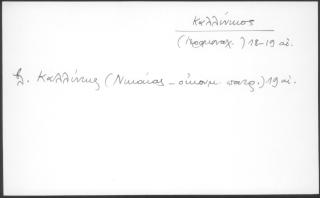 Καλλίνικος
(Ιερομοναχ. ) 18-19 αἰ.
βλ. Καλλίνικος (Νικαίας - οἰκουμ πατρ.) 19 αἰ.